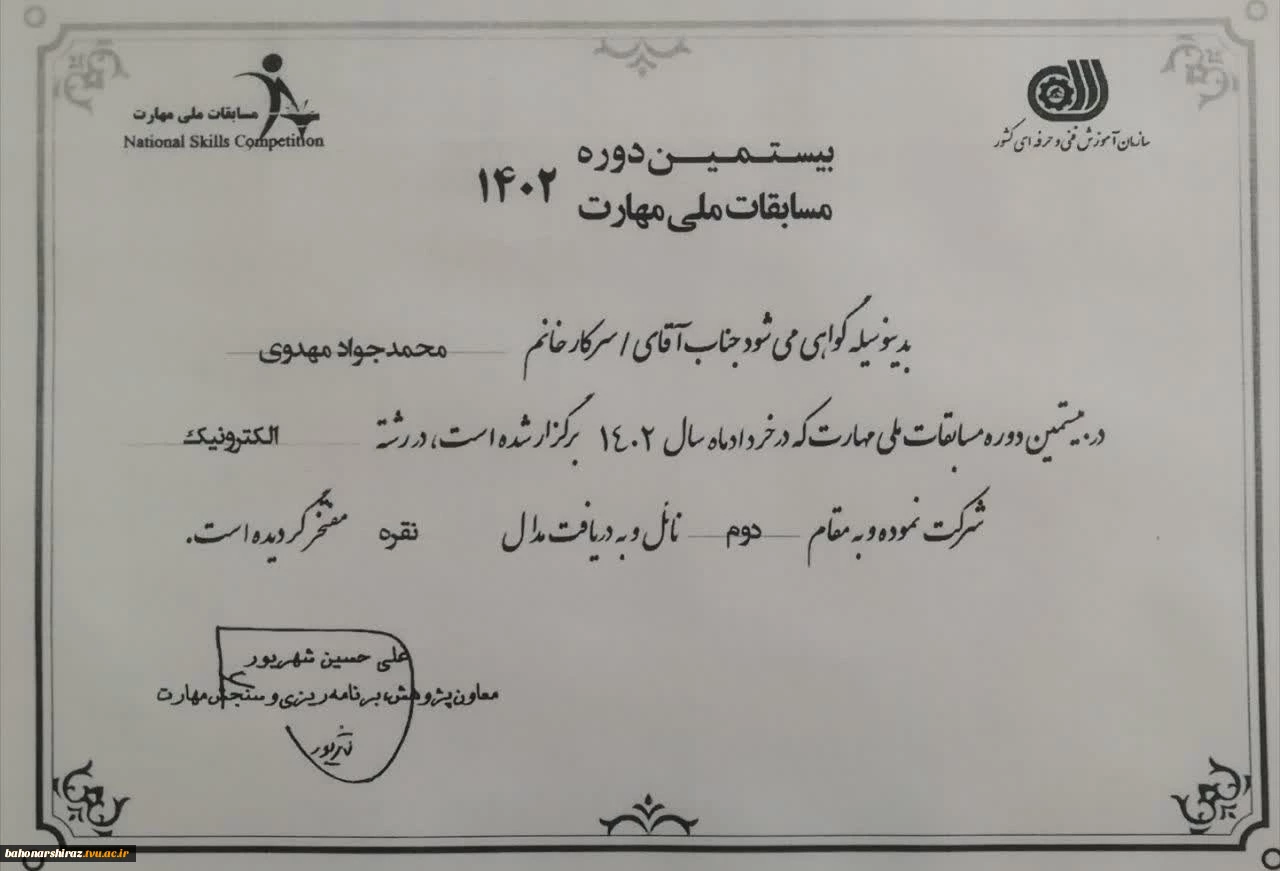 سازمان آموزش فنی و حرفه ای کشور
مسابقات ملی مهارت
National Skills Competition
بیستمین دوره
مسابقات ملی مهارت
۱۴۰۲
بدینوسیله گواهی می شود جناب آقای / سرکار خانم محمدجواد مهدوی
در بیستمین دوره مسابقات ملی مهارت که در خرداد ماه سال ۱۴۰۲ برگزار شده است، در رشته الکترونیک
شرکت نموده و به مقام دوم نائل و به دریافت مدال نقره مفتخر گردیده است.
علی حسین شهریور
معاون پژوهش، برنامه ریزی و سنجش مهارت
bahonarshiraz.tvu.ac.ir